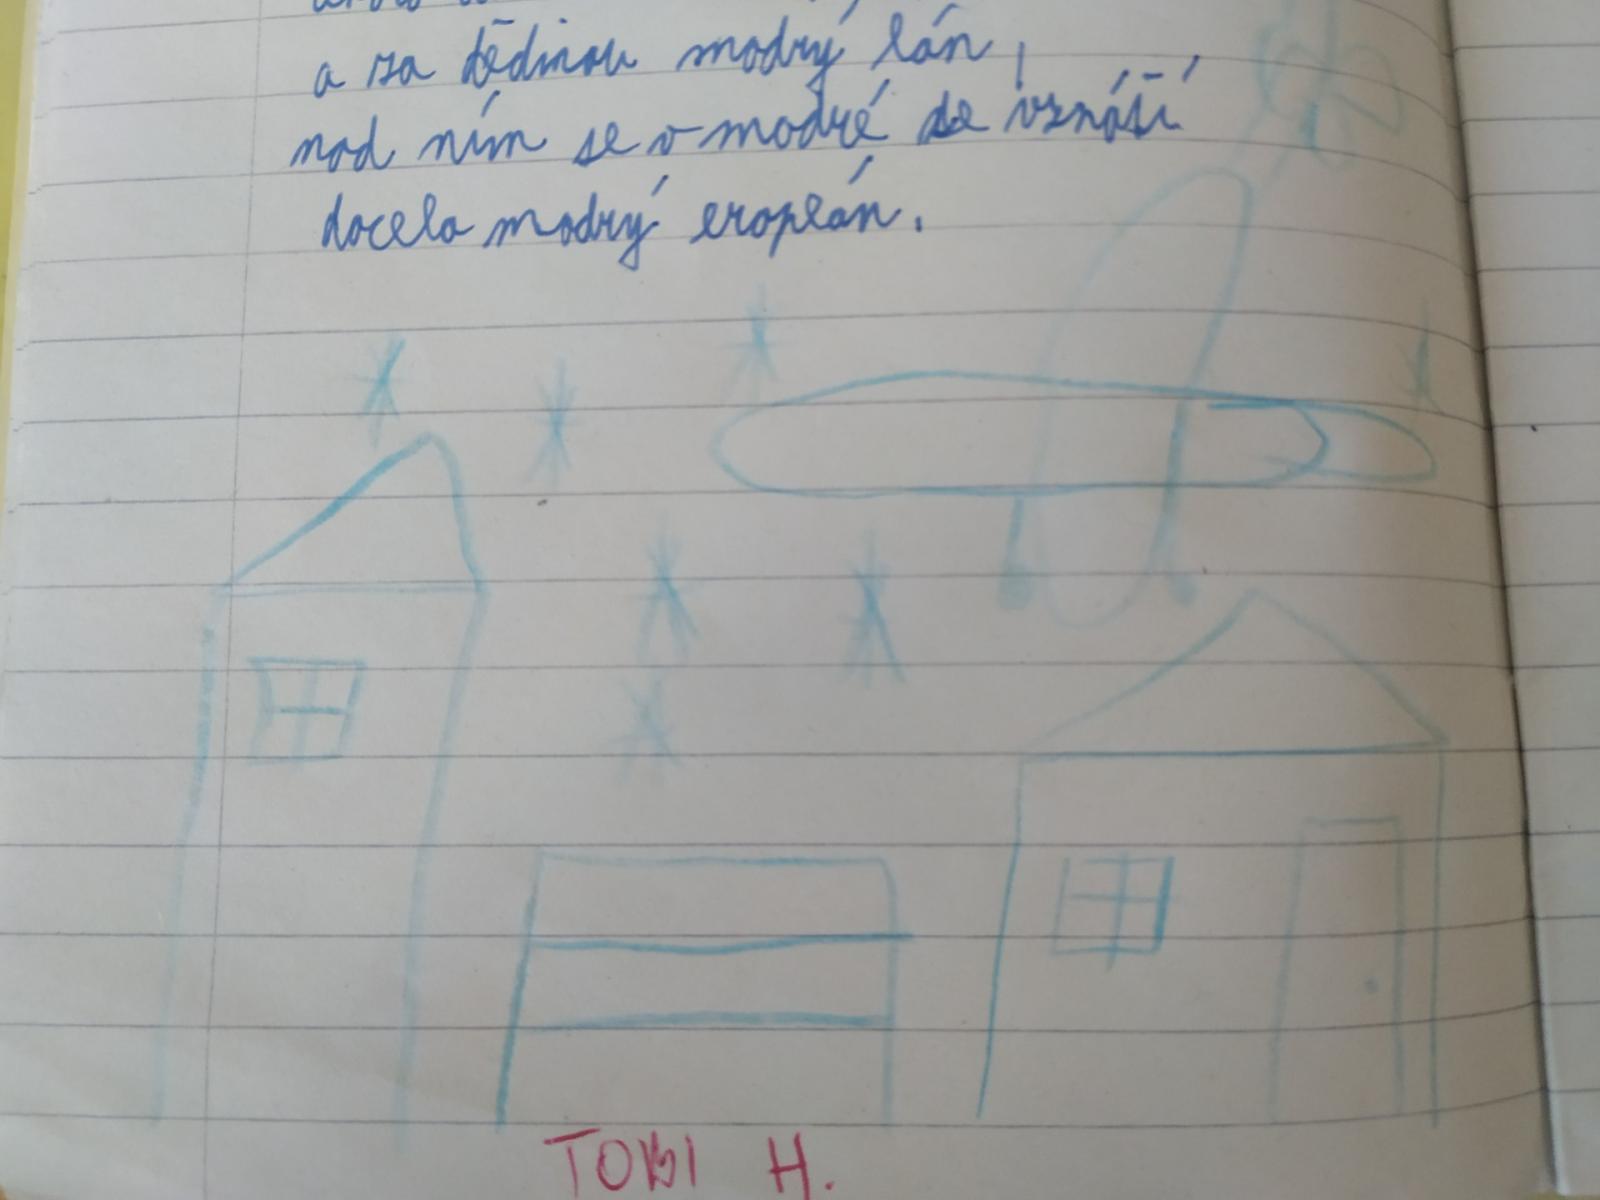 a za dědinou modrý lán,
nad ním se v modré se vznáší
docela modrý eroplán.
TOBI H.